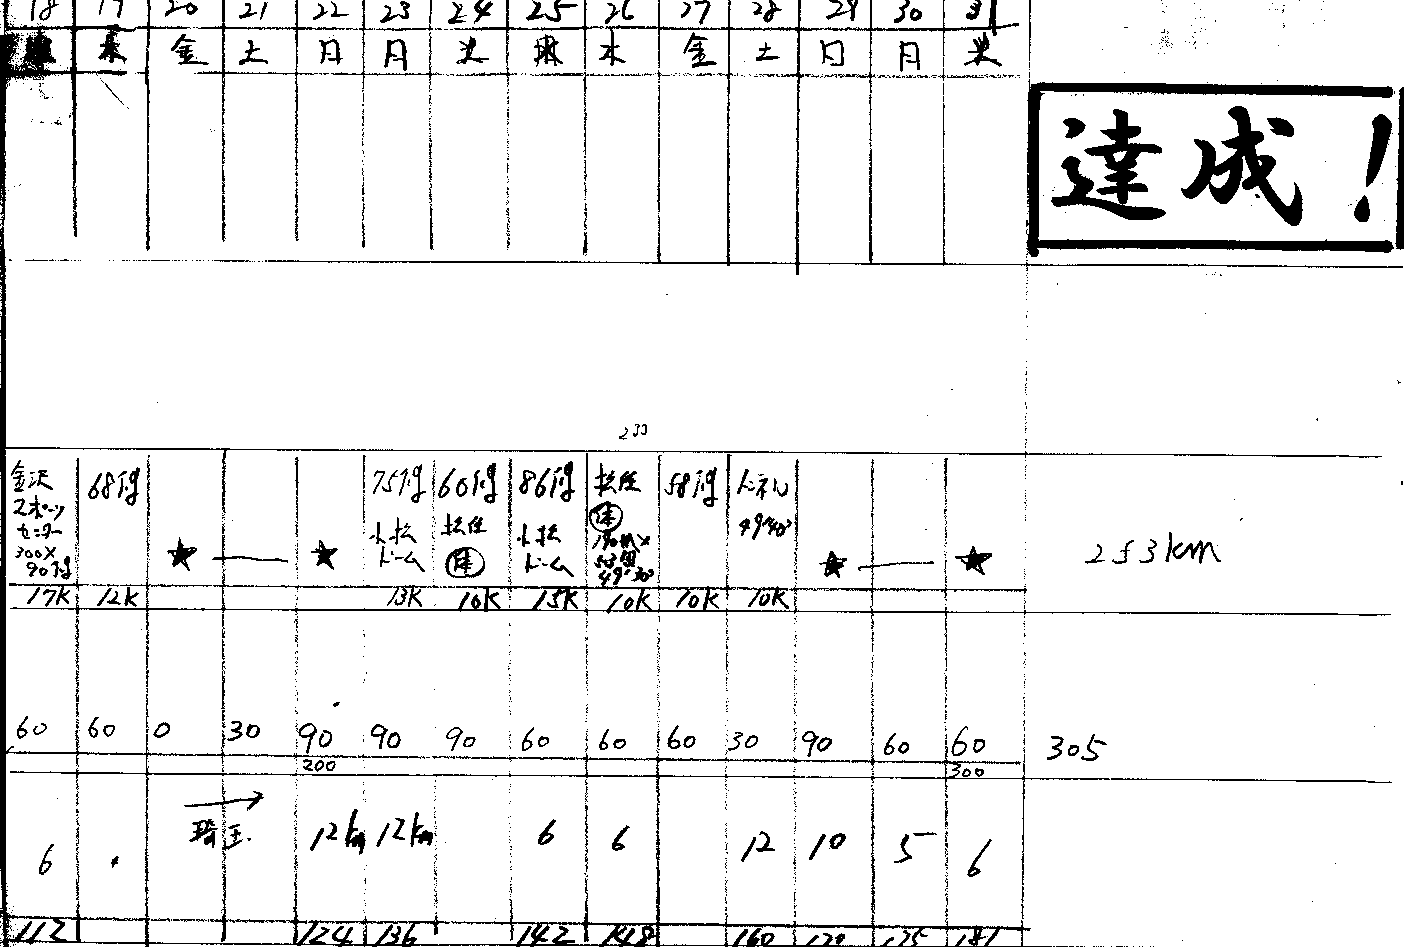 18 19 20 21 22 23 24 25 26 27 28 29 30 31
木 金 土 日 月 火 水 金 土 日 月 火
達成!
233
金沢 68付 75付 60付 86付 松任 58付 トネル
スポーツ 小松 松任 小松 体 49'40"
センター ドーム 体 ドーム
300×
90付
★ — ★ ★ — ★
253km
17K 12K 13K 10K 15K 10K 10K 10K
60 60 0 30 90 90 90 60 60 60 30 90 60 60 305
200 300
→
埼玉
6 12km 12km 6 6 12 10 5 6
112 124 136 142 148 160 170 175 181